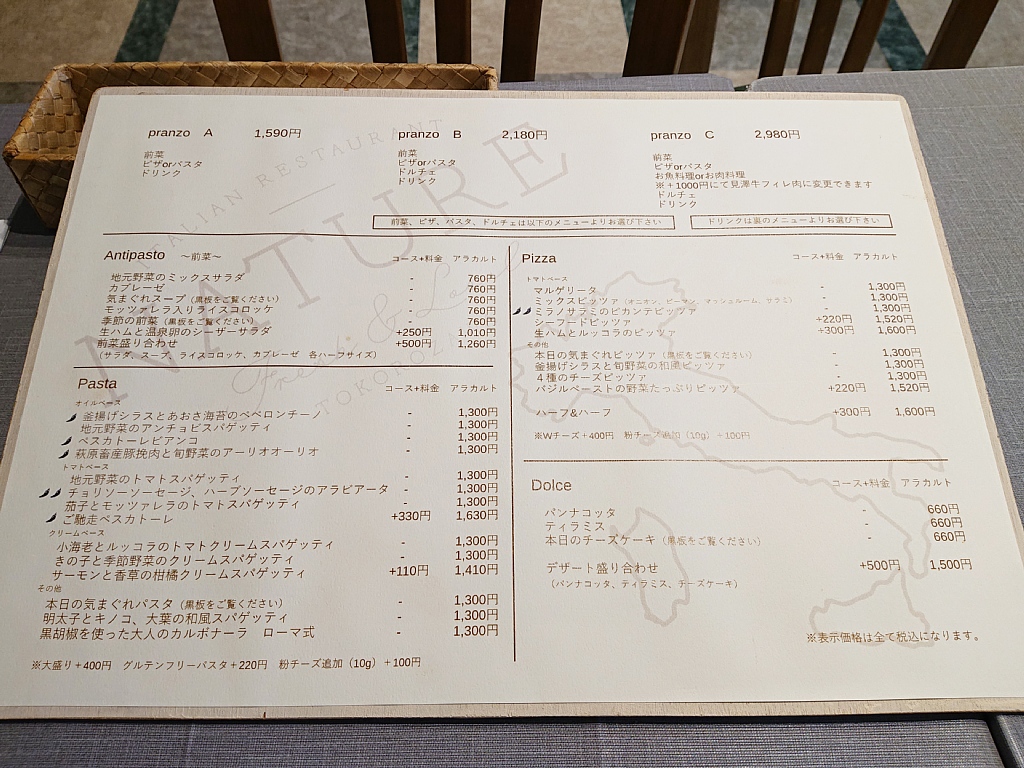 pranzo A 1,590円
前菜
ピザorパスタ
ドリンク
pranzo B 2,180円
前菜
ピザorパスタ
ドルチェ
ドリンク
pranzo C 2,980円
前菜
ピザorパスタ
お魚料理orお肉料理
※+1000円にて見澤牛フィレ肉に変更できます
ドルチェ
ドリンク
前菜、ピザ、パスタ、ドルチェは以下のメニューよりお選び下さい
ドリンクは裏のメニューよりお選び下さい
ITALIAN RESTAURANT
NATURE
Fresh & Local
TOKOROZAWA
Antipasto ～前菜～ コース+料金 アラカルト
地元野菜のミックスサラダ - 760円
カプレーゼ - 760円
気まぐれスープ（黒板をご覧ください） - 760円
モッツァレラ入りライスコロッケ - 760円
季節の前菜（黒板をご覧ください） - 760円
生ハムと温泉卵のシーザーサラダ +250円 1,010円
前菜盛り合わせ +500円 1,260円
（サラダ、スープ、ライスコロッケ、カプレーゼ 各ハーフサイズ）
Pasta コース+料金 アラカルト
オイルベース
釜揚げシラスとあおさ海苔のペペロンチーノ - 1,300円
地元野菜のアンチョビスパゲッティ - 1,300円
ペスカトーレビアンコ - 1,300円
萩原畜産豚挽肉と旬野菜のアーリオオーリオ - 1,300円
トマトベース
地元野菜のトマトスパゲッティ - 1,300円
チョリソーソーセージ、ハーブソーセージのアラビアータ - 1,300円
茄子とモッツァレラのトマトスパゲッティ - 1,300円
ご馳走ペスカトーレ +330円 1,630円
クリームベース
小海老とルッコラのトマトクリームスパゲッティ - 1,300円
きの子と季節野菜のクリームスパゲッティ - 1,300円
サーモンと香草の柑橘クリームスパゲッティ +110円 1,410円
その他
本日の気まぐれパスタ（黒板をご覧ください） - 1,300円
明太子とキノコ、大葉の和風スパゲッティ - 1,300円
黒胡椒を使った大人のカルボナーラ ローマ式 - 1,300円
※大盛り+400円 グルテンフリーパスタ+220円 粉チーズ追加（10g）+100円
Pizza コース+料金 アラカルト
トマトベース
マルゲリータ - 1,300円
ミックスピッツァ（オニオン、ピーマン、マッシュルーム、サラミ） - 1,300円
ミラノサラミのピカンテピッツァ - 1,300円
シーフードピッツァ +220円 1,520円
生ハムとルッコラのピッツァ +300円 1,600円
その他
本日の気まぐれピッツァ（黒板をご覧ください） - 1,300円
釜揚げシラスと旬野菜の和風ピッツァ - 1,300円
４種のチーズピッツァ - 1,300円
バジルペーストの野菜たっぷりピッツァ +220円 1,520円
ハーフ&ハーフ +300円 1,600円
※Wチーズ+400円 粉チーズ追加（10g）+100円
Dolce コース+料金 アラカルト
パンナコッタ - 660円
ティラミス - 660円
本日のチーズケーキ（黒板をご覧ください） - 660円
デザート盛り合わせ +500円 1,500円
（パンナコッタ、ティラミス、チーズケーキ）
※表示価格は全て税込になります。